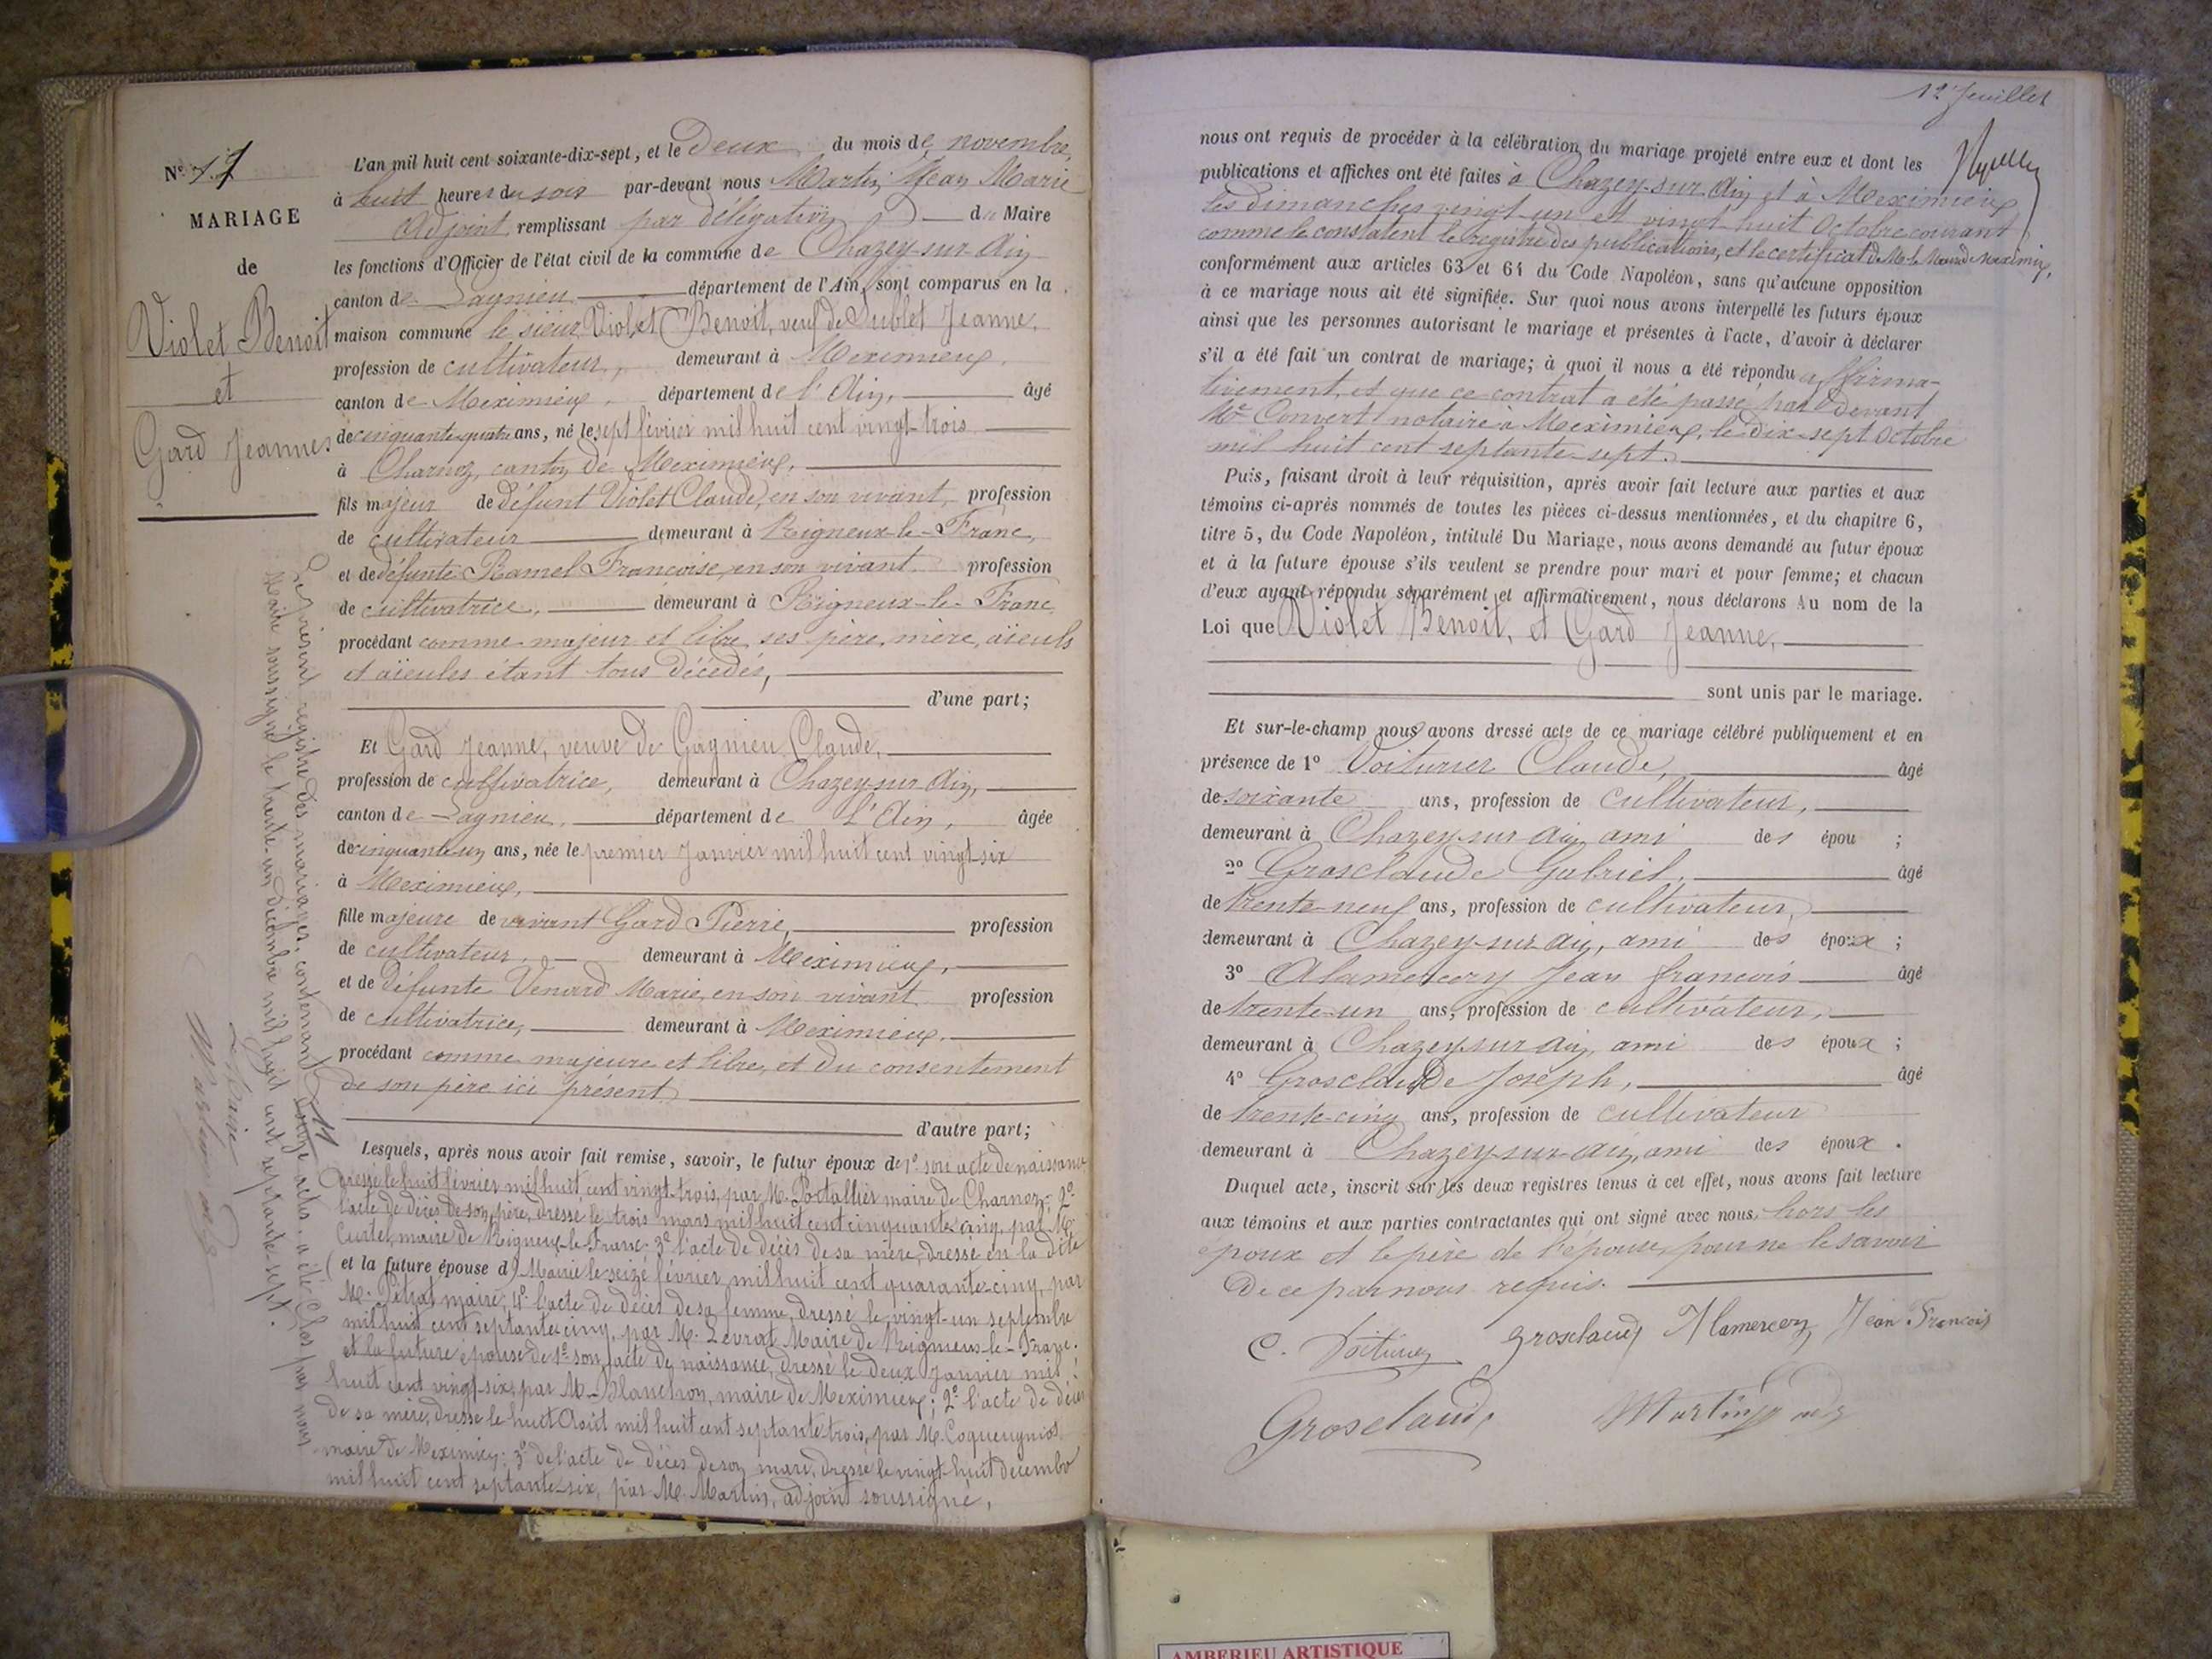 MARIAGE
de
Violet Benoit
et
Gard Jeanne
L'an mil huit cent soixante-dix-sept, et le deux du mois de novembre,
à huit heures du soir par-devant nous Martin Jean Marie
adjoint, remplissant par délégation du Maire
les fonctions d'Officier de l'état civil de la commune de Chazey-sur-Ain
canton de Lagnieu département de l'Ain, sont comparus en la
maison commune le sieur Violet Benoit, veuf de Sublet Jeanne,
profession de cultivateur, demeurant à Meximieux,
canton de Meximieux, département de l'Ain, âgé
de cinquante-quatre ans, né le sept février mil huit cent vingt-trois
à Charnoz, canton de Meximieux,
fils majeur de défunt Violet Claude, en son vivant, profession
de cultivateur demeurant à Rigneux-le-Franc,
et de défunte Ramel Françoise, en son vivant profession
de cultivatrice, demeurant à Rigneux-le-Franc,
procédant comme majeur et libre, ses père, mère, aïeuls
et aïeules étant tous décédés,
d'une part;
Et Gard Jeanne, veuve de Gagnieu Claude,
profession de cultivatrice, demeurant à Chazey-sur-Ain,
canton de Lagnieu, département de l'Ain, âgée
de cinquante-un ans, née le premier Janvier mil huit cent vingt-six
à Meximieux,
fille majeure de vivant Gard Pierre, profession
de cultivateur, demeurant à Meximieux,
et de défunte Venard Marie, en son vivant profession
de cultivatrice, demeurant à Meximieux,
procédant comme majeure et libre, et du consentement
de son père ici présent
d'autre part;
Lesquels, après nous avoir fait remise, savoir, le futur époux de 1º son acte de naissance
dressé le huit février mil huit cent vingt-trois, par M. Portallier maire de Charnoz; 2º
l'acte de décès de son père, dressé le trois mars mil huit cent cinquante-cinq, par M.
maire de Rigneux-le-Franc; 3º l'acte de décès de sa mère, dressé en la dite
( et la future épouse d ) Mairie le seize février mil huit cent quarante-cinq, par
M. maire; 4º l'acte de décès de sa femme, dressé le vingt-un septembre
mil huit cent septante-cinq, par M. Levrat Maire de Rigneux-le-Franc.
et la future épouse de 1º son acte de naissance, dressé le deux Janvier mil
huit cent vingt-six, par M. Blanchon, maire de Meximieux; 2º l'acte de décès
de sa mère, dressé le huit Août mil huit cent septante-trois, par M. Coqueugniot
maire de Meximieux; 3º de l'acte de décès de son mari, dressé le vingt-huit décembre
mil huit cent septante-six, par M. Martin, adjoint soussigné,
Le présent registre des mariages, contenant actes, a été clos par nous
Maire soussigné le trente-un décembre mil huit cent septante-sept.
Le Maire
12e feuillet
nous ont requis de procéder à la célébration du mariage projeté entre eux et dont les
publications et affiches ont été faites à Chazey-sur-Ain et à Meximieux
les dimanches vingt-un et vingt-huit Octobre courant
comme le constatent le registre des publications, et le certificat de M. le Maire de Meximieux,
conformément aux articles 63 et 64 du Code Napoléon, sans qu'aucune opposition
à ce mariage nous ait été signifiée. Sur quoi nous avons interpellé les futurs époux
ainsi que les personnes autorisant le mariage et présentes à l'acte, d'avoir à déclarer
s'il a été fait un contrat de mariage; à quoi il nous a été répondu affirma-
tivement, et que ce contrat a été passé par devant
Me Convert notaire à Meximieux, le dix-sept Octobre
mil huit cent septante-sept.
Puis, faisant droit à leur réquisition, après avoir fait lecture aux parties et aux
témoins ci-après nommés de toutes les pièces ci-dessus mentionnées, et du chapitre 6,
titre 5, du Code Napoléon, intitulé Du Mariage, nous avons demandé au futur époux
et à la future épouse s'ils veulent se prendre pour mari et pour femme; et chacun
d'eux ayant répondu séparément et affirmativement, nous déclarons Au nom de la
Loi que Violet Benoit, et Gard Jeanne,
sont unis par le mariage.
Et sur-le-champ nous avons dressé acte de ce mariage célébré publiquement et en
présence de 1º Voiturier Claude, âgé
de soixante ans, profession de cultivateur,
demeurant à Chazey-sur-Ain, ami des épou ;
2º Grosclaude Gabriel, âgé
de trente-neuf ans, profession de cultivateur,
demeurant à Chazey-sur-Ain, ami des époux ;
3º Alamercery Jean françois âgé
de trente-un ans, profession de cultivateur,
demeurant à Chazey-sur-Ain, ami des époux ;
4º Grosclaude Joseph, âgé
de trente-cinq ans, profession de cultivateur
demeurant à Chazey-sur-Ain, ami des époux .
Duquel acte, inscrit sur les deux registres tenus à cet effet, nous avons fait lecture
aux témoins et aux parties contractantes qui ont signé avec nous, hors les
époux et le père de l'épouse, pour ne le savoir
de ce par nous requis.
C. Voiturier Grosclaude Alamercery Jean François
Grosclaude Martin adj
AMBERIEU ARTISTIQUE